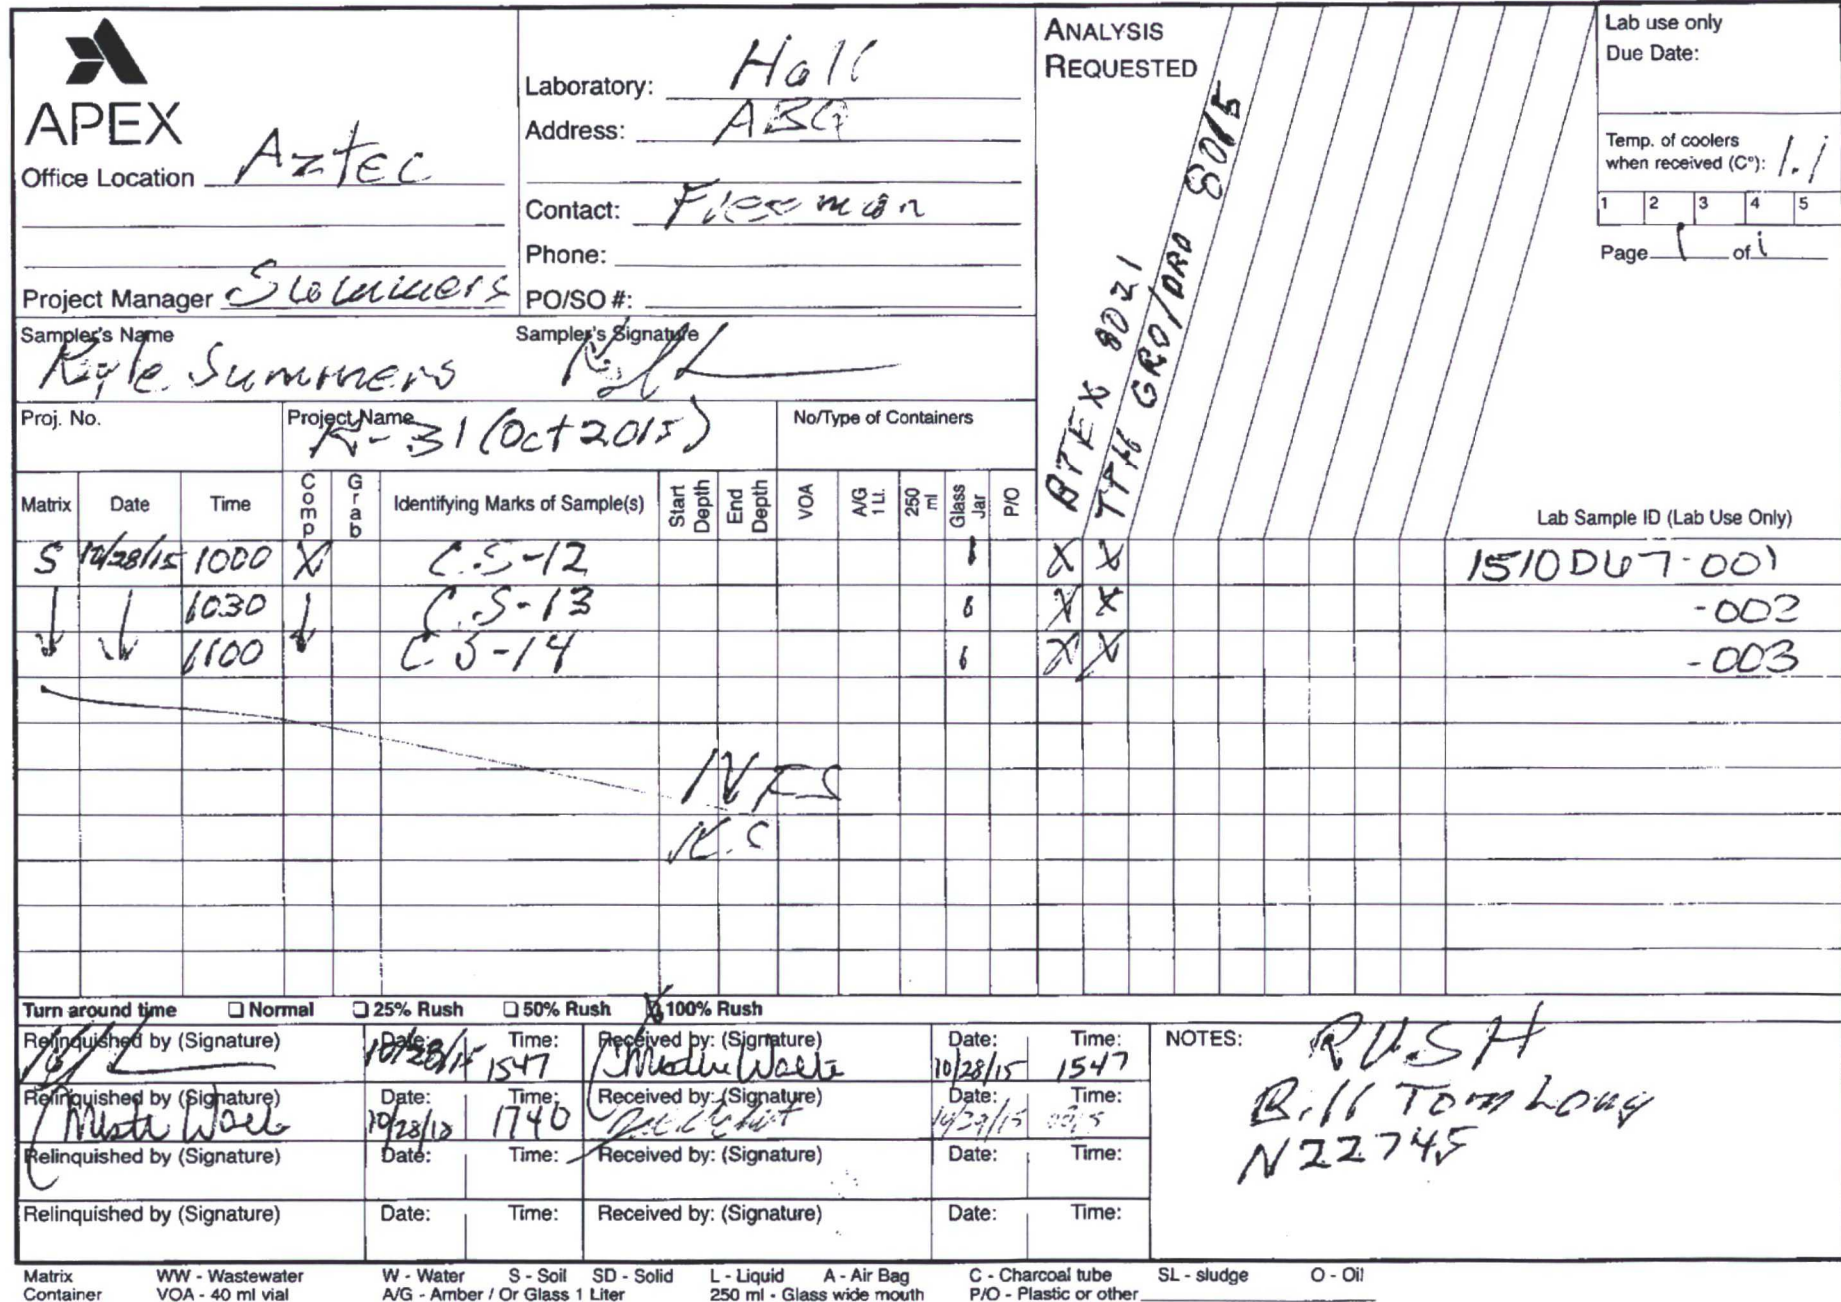 APEX
Office Location Aztec
Project Manager Summers
Laboratory: Hall
Address: ABQ
Contact: Freeman
Phone:
PO/SO #:
Sampler's Name
Kyle Summers
Sampler's Signature
ANALYSIS
REQUESTED
BTEX 8021
TPH GRO/DRO 8015
Lab use only
Due Date:
Temp. of coolers
when received (C°): 1.1
1 2 3 4 5
Page 1 of 1
Proj. No.
Project Name
K-31 (Oct 2015)
No/Type of Containers
Matrix Date Time Comp Grab Identifying Marks of Sample(s) Start Depth End Depth VOA A/G 1 Lt. 250 ml Glass Jar P/O Lab Sample ID (Lab Use Only)
S 10/28/15 1000 X CS-12 1 X X 1510D67-001
1030 CS-13 1 X X -002
1100 CS-14 1 X X -003
NFS
K.S
Turn around time ❑ Normal ❑ 25% Rush ❑ 50% Rush X 100% Rush
Relinquished by (Signature) Date: 10/28/15 Time: 1547 Received by: (Signature) Date: 10/28/15 Time: 1547
Relinquished by (Signature) Date: 10/28/15 Time: 1740 Received by: (Signature) Date: Time:
Relinquished by (Signature) Date: Time: Received by: (Signature) Date: Time:
Relinquished by (Signature) Date: Time: Received by: (Signature) Date: Time:
NOTES: RUSH
Bill Tom Long
N22745
Matrix WW - Wastewater W - Water S - Soil SD - Solid L - Liquid A - Air Bag C - Charcoal tube SL - sludge O - Oil
Container VOA - 40 ml vial A/G - Amber / Or Glass 1 Liter 250 ml - Glass wide mouth P/O - Plastic or other